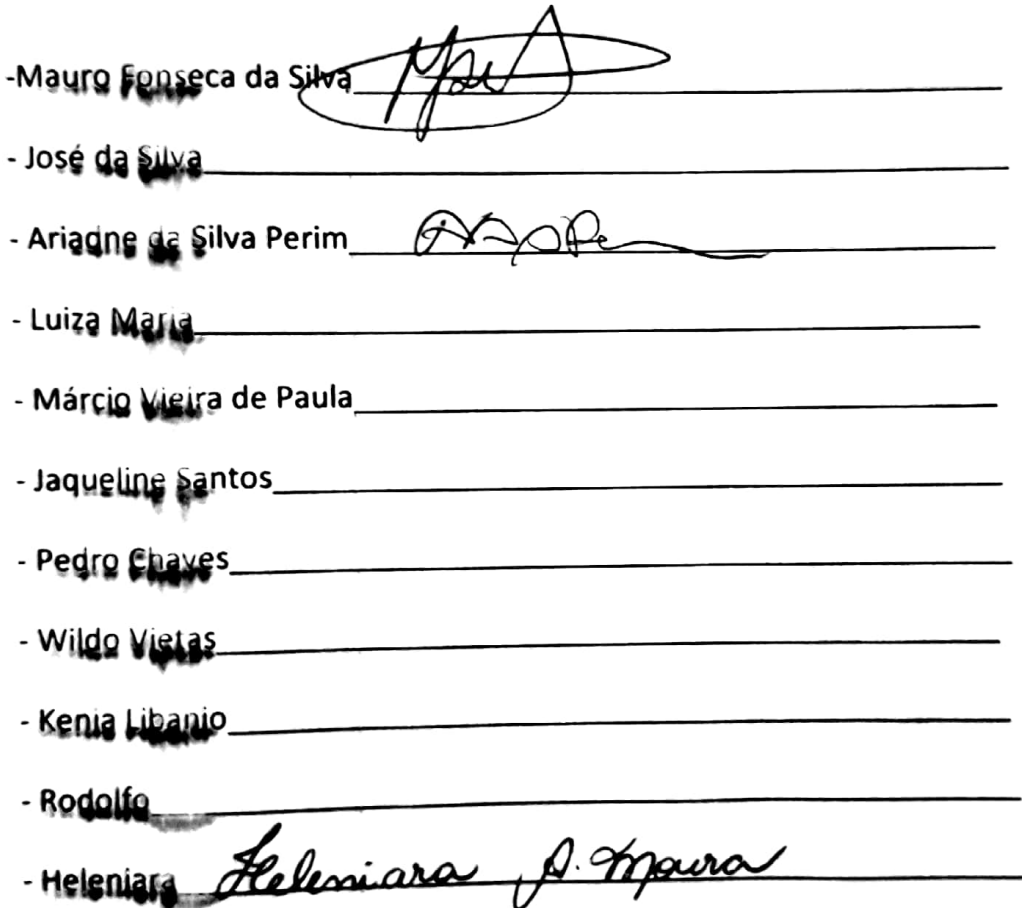 -Mauro Fonseca da Silva
- José da Silva
- Ariadne da Silva Perim
- Luiza Maria
- Márcio Vieira de Paula
- Jaqueline Santos
- Pedro Chaves
- Wildo Vietas
- Kenia Libanio
- Rodolfo
- Heleniara Heleniara A. Moura